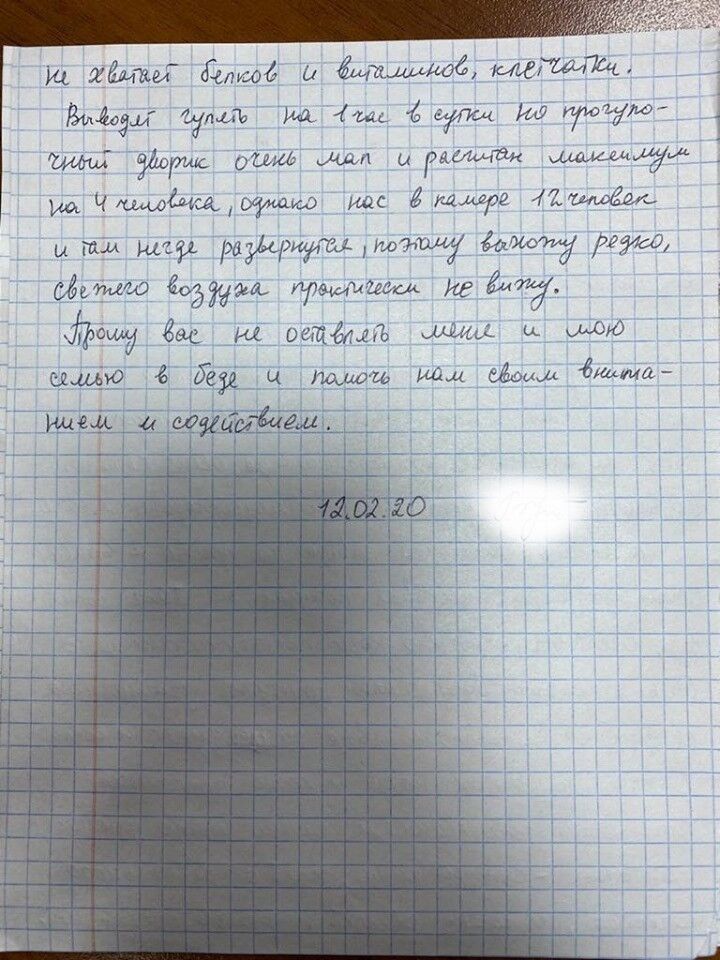 не хватает белков и витаминов, клетчатки.
Выводят гулять на 1 час в сутки но прогуло-
чный дворик очень мал и расчитан максимум
на 4 человека, однако нас в камере 12 человек
и там негде развернутся, поэтому выхожу редко,
свежего воздуха практически не вижу.
Прошу вас не оставлять меня и мою
семью в беде и помочь нам своим внима-
нием и содействием.
12.02.20